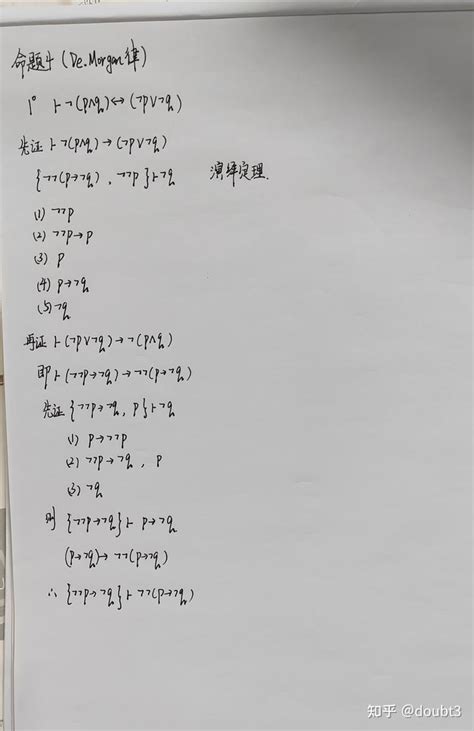 命题4 (De.Morgan律)
1° ⊢¬(p∧q)↔(¬p∨¬q)
先证 ⊢¬(p∧q)→(¬p∨¬q)
{¬¬(p→¬q), ¬¬p}⊢¬q 演绎定理.
(1) ¬¬p
(2) ¬¬p→p
(3) p
(4) p→¬q
(5) ¬q
再证 ⊢(¬p∨¬q)→¬(p∧q)
即 ⊢(¬¬p→¬q)→¬¬(p→¬q)
先证 {¬¬p→¬q, p}⊢¬q
(1) p→¬¬p
(2) ¬¬p→¬q, p
(3) ¬q
则 {¬¬p→¬q}⊢ p→¬q
(p→¬q)→¬¬(p→¬q)
∴ {¬¬p→¬q}⊢¬¬(p→¬q)
知乎 @doubt3